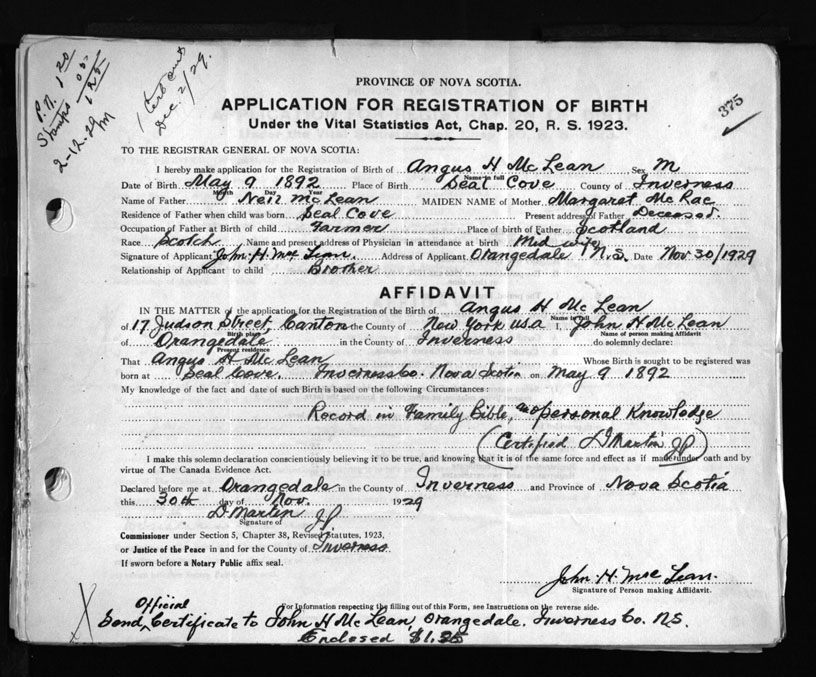 P.N. 1 20
Stamps 05
1 25
2-12-29 M
1 Cert sent
Dec. 2/29.
375
PROVINCE OF NOVA SCOTIA.
APPLICATION FOR REGISTRATION OF BIRTH
Under the Vital Statistics Act, Chap. 20, R. S. 1923.
TO THE REGISTRAR GENERAL OF NOVA SCOTIA:
I hereby make application for the Registration of Birth of Angus H McLean Sex M
Name in full
Date of Birth May 9 1892 Place of Birth Seal Cove County of Inverness
Month Day Year
Name of Father Neil McLean MAIDEN NAME of Mother Margaret McRae
Residence of Father when child was born Seal Cove Present address of Father Deceased.
Occupation of Father at Birth of child Farmer Place of birth of Father Scotland
Race Scotch Name and present address of Physician in attendance at birth Mid wife
Signature of Applicant John. H. Mac Lean. Address of Applicant Orangedale N.S. Date Nov 30/1929
Relationship of Applicant to child Brother
AFFIDAVIT
IN THE MATTER of the application for the Registration of the Birth of Angus H McLean
Name in full
of 17 Judson Street, Canton in the County of New York USA I, John H McLean
Birth place Name of person making Affidavit
of Orangedale in the County of Inverness do solemnly declare:
Present residence
That Angus H McLean Whose Birth is sought to be registered was
born at Seal Cove. Inverness Co. Nova Scotia on May 9 1892
My knowledge of the fact and date of such Birth is based on the following Circumstances:
Record in Family Bible, personal Knowledge
(Certified D Martin JP)
I make this solemn declaration conscientiously believing it to be true, and knowing that it is of the same force and effect as if made under oath and by
virtue of The Canada Evidence Act.
Declared before me at Orangedale in the County of Inverness and Province of Nova Scotia
this 30th day of Nov. 1929
D. Martin JP
Signature of
Commissioner under Section 5, Chapter 38, Revised Statutes, 1923,
or Justice of the Peace in and for the County of Inverness
If sworn before a Notary Public affix seal.
John. H. Mac Lean.
Signature of Person making Affidavit.
For Information respecting the filling out of this Form, see Instructions on the reverse side.
Official
Send Certificate to John H McLean, Orangedale. Inverness Co. N.S.
Enclosed $1.25